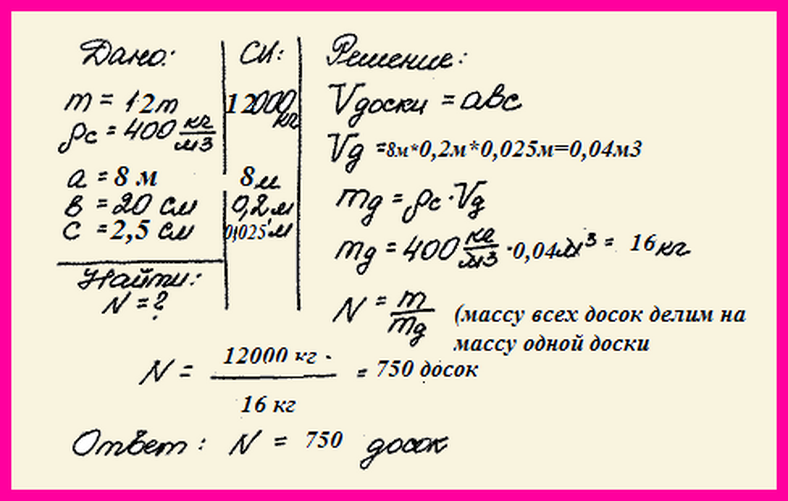 Дано:
m = 12т
ρс = 400 кг/м3
a = 8 м
в = 20 см
с = 2,5 см
Найти:
N = ?
СИ:
12000 кг
8м
0,2м
0,025м
Решение:
Vдоски = авс
Vд =8м*0,2м*0,025м=0,04м3
mд = ρс·Vд
mд = 400 кг/м3 ·0,04м3 = 16кг
N = m/mд (массу всех досок делим на
массу одной доски
N = 12000 кг / 16 кг = 750 досок
Ответ: N = 750 досок